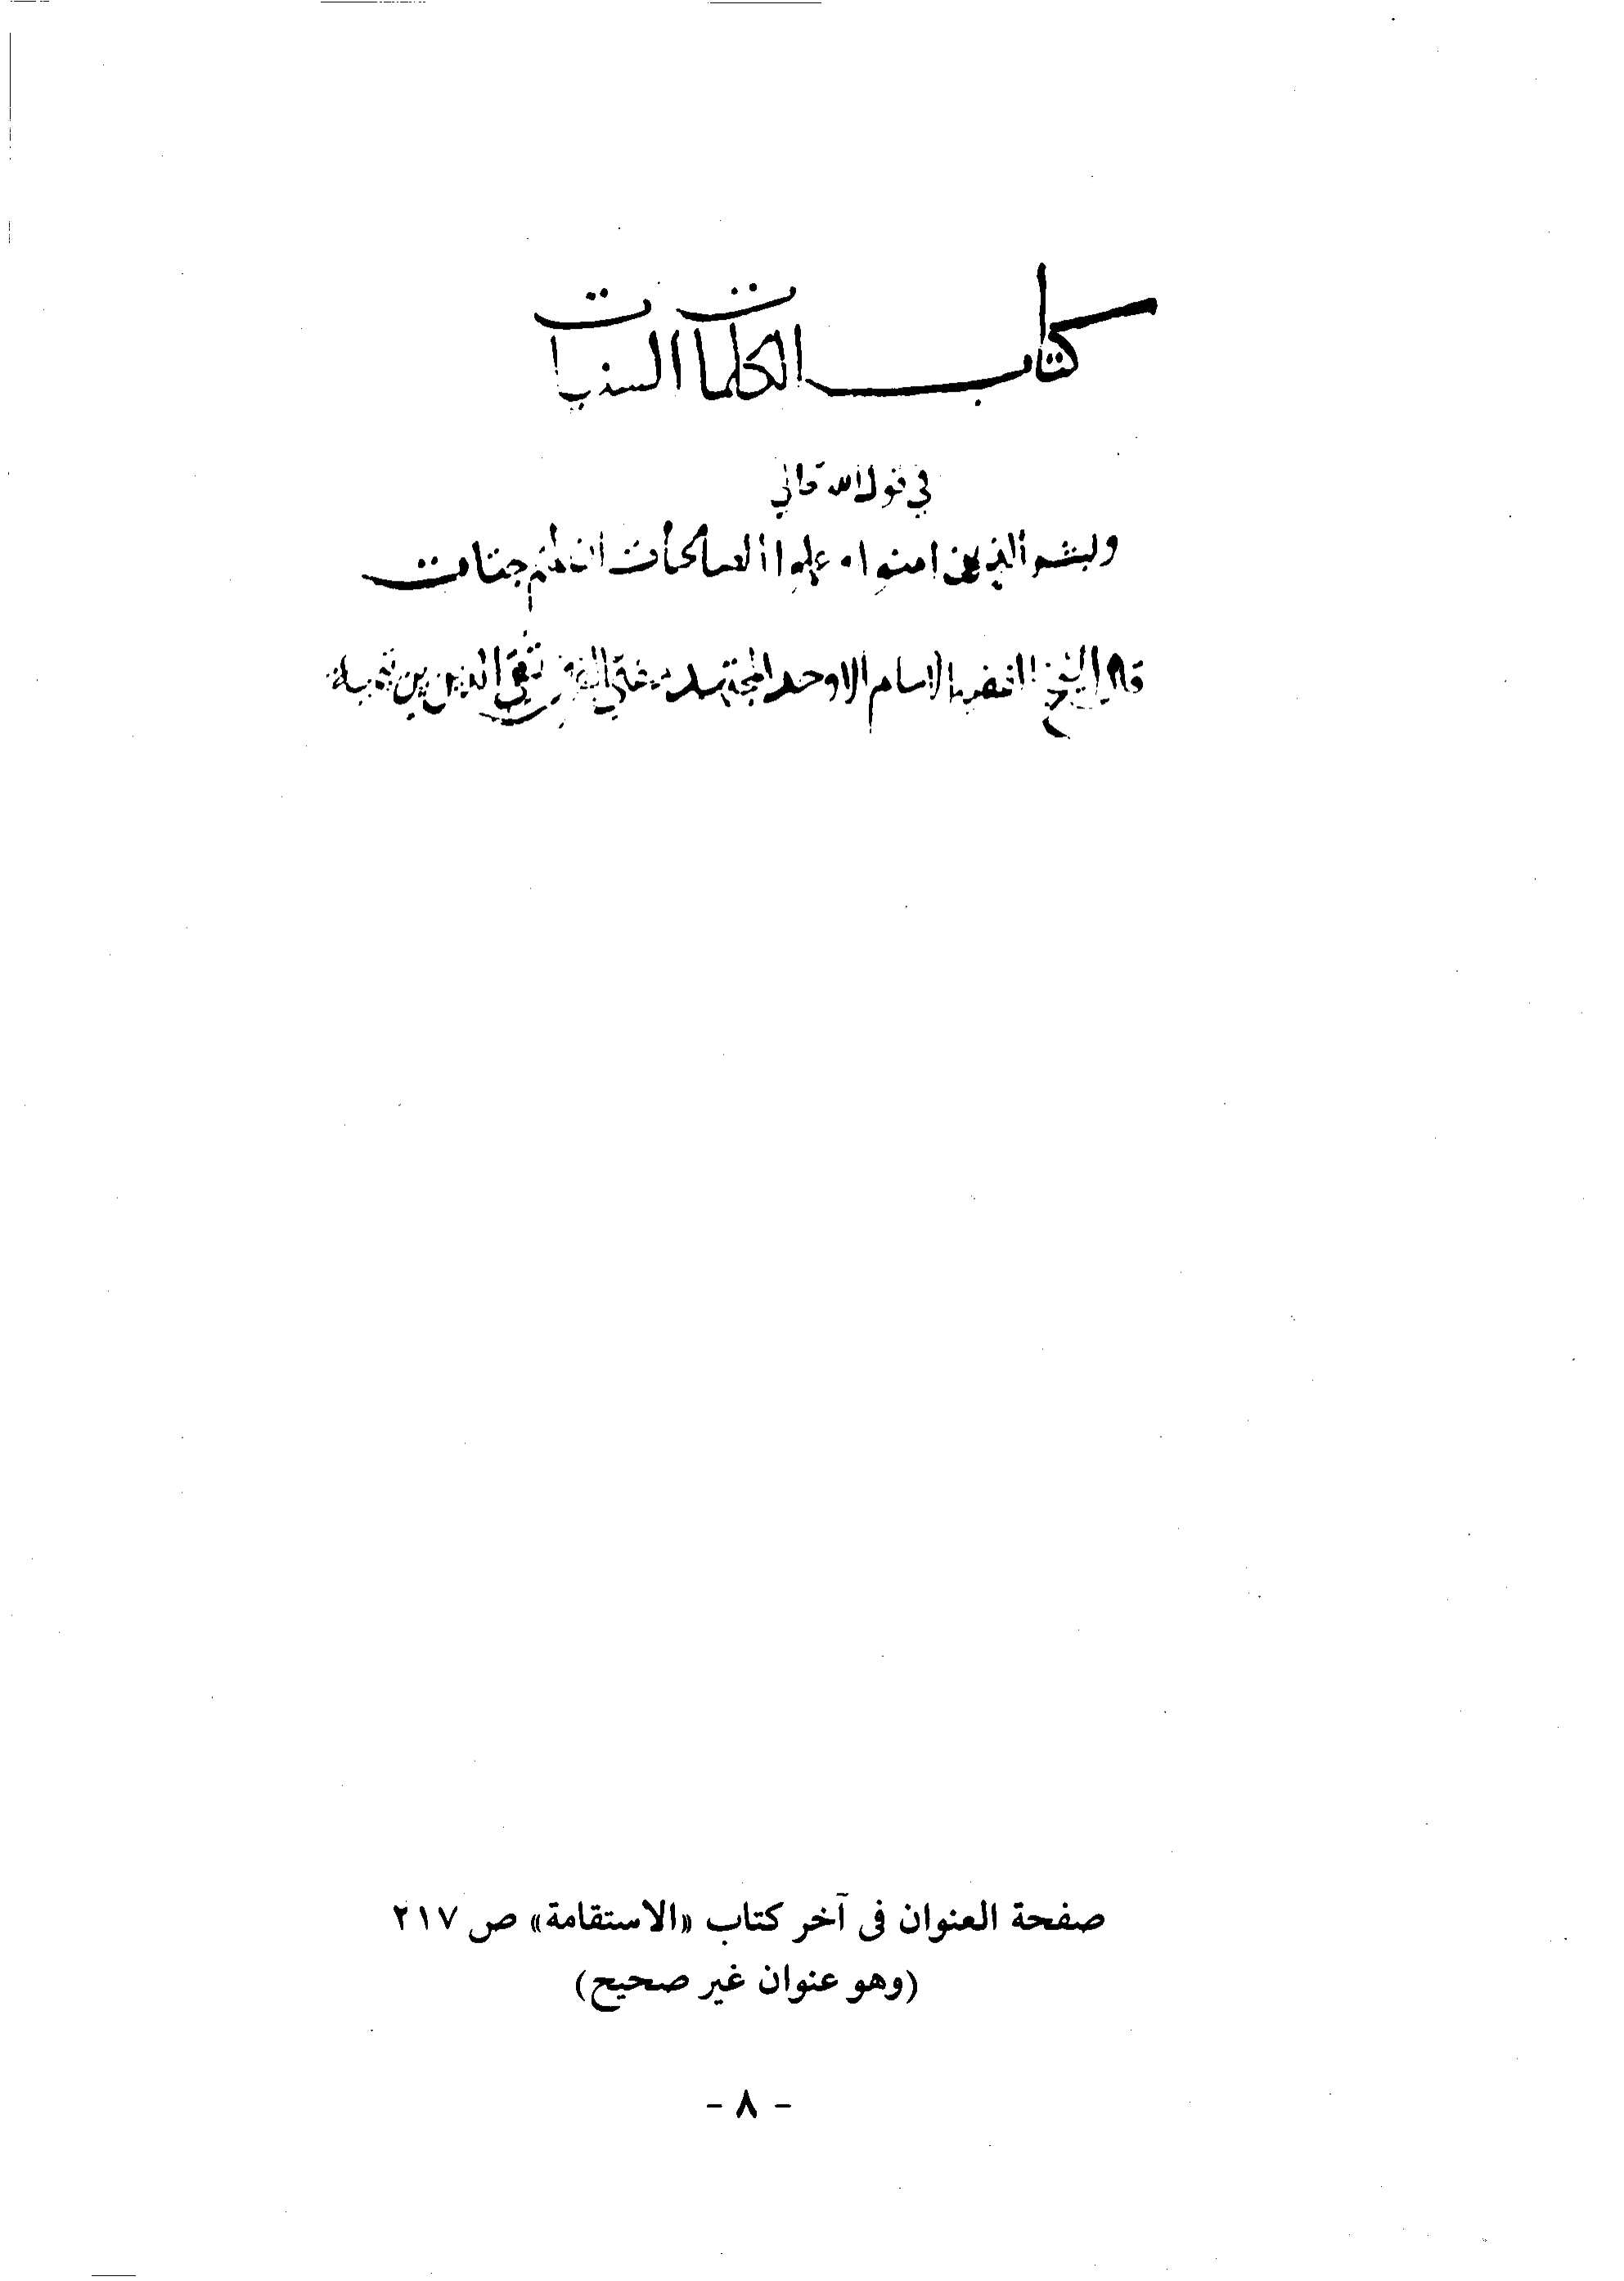 كتاب الكلمات السنيات
في قول الله تعالي
وبشر الذين امنوا وعملوا الصالحات ان لهم جنات
قال الشيخ الامام الاوحد المجتهد مفتي تقي الدين بن تيمية
صفحة العنوان فى آخر كتاب «الاستقامة» ص ٢١٧
(وهو عنوان غير صحيح)
- ٨ -